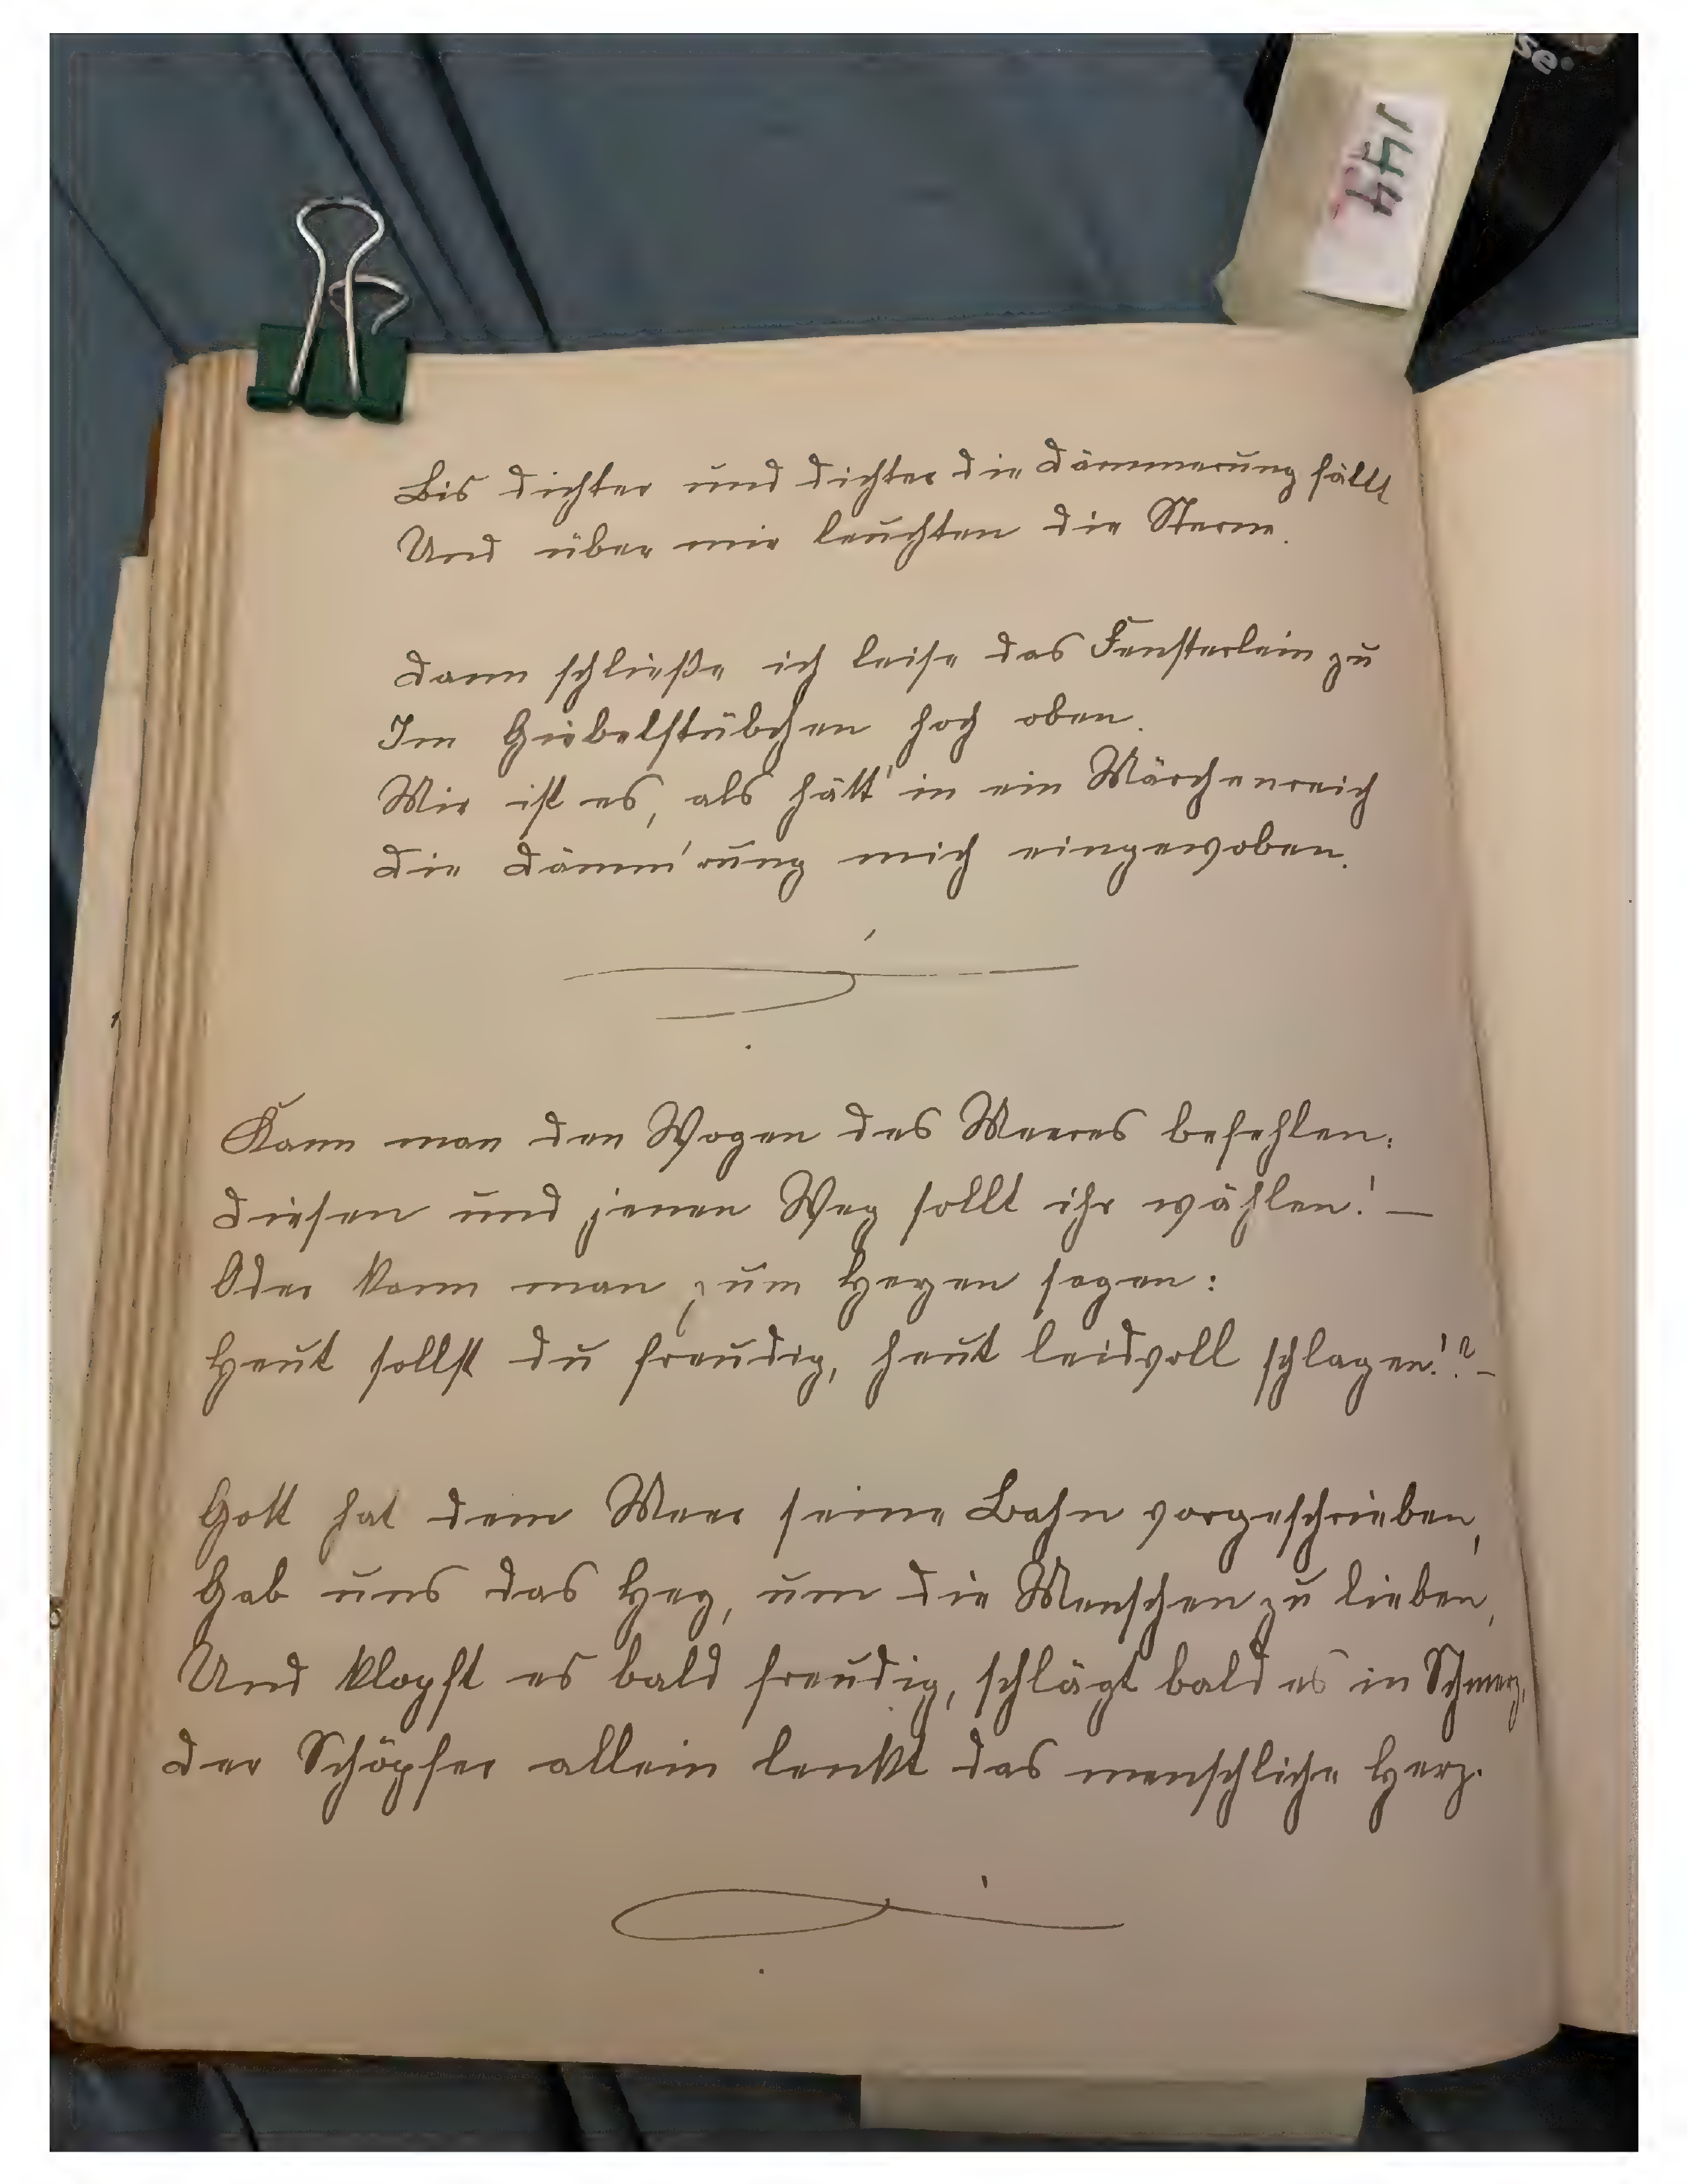 144
se.
Bis dichter und dichter die Dämmerung fällt
Und über mir leuchten die Sterne.
Dann schließe ich leise das Fensterlein zu
Im Giebelstübchen hoch oben.
Mir ist es, als hätt' in ein Märchenreich
Die Dämm'rung mich eingewoben.
Kann man den Wogen des Meeres befehlen:
Diesen und jenen Weg sollt ihr wählen! —
Oder kann man zum Herzen sagen:
Heut sollst du freudig, heut leidvoll schlagen!? –
Gott hat dem Meer seine Bahn vorgeschrieben,
Gab uns das Herz, um die Menschen zu lieben,
Und klopft es bald freudig, schlägt bald es in Schmerz,
Der Schöpfer allein lenkt das menschliche Herz.